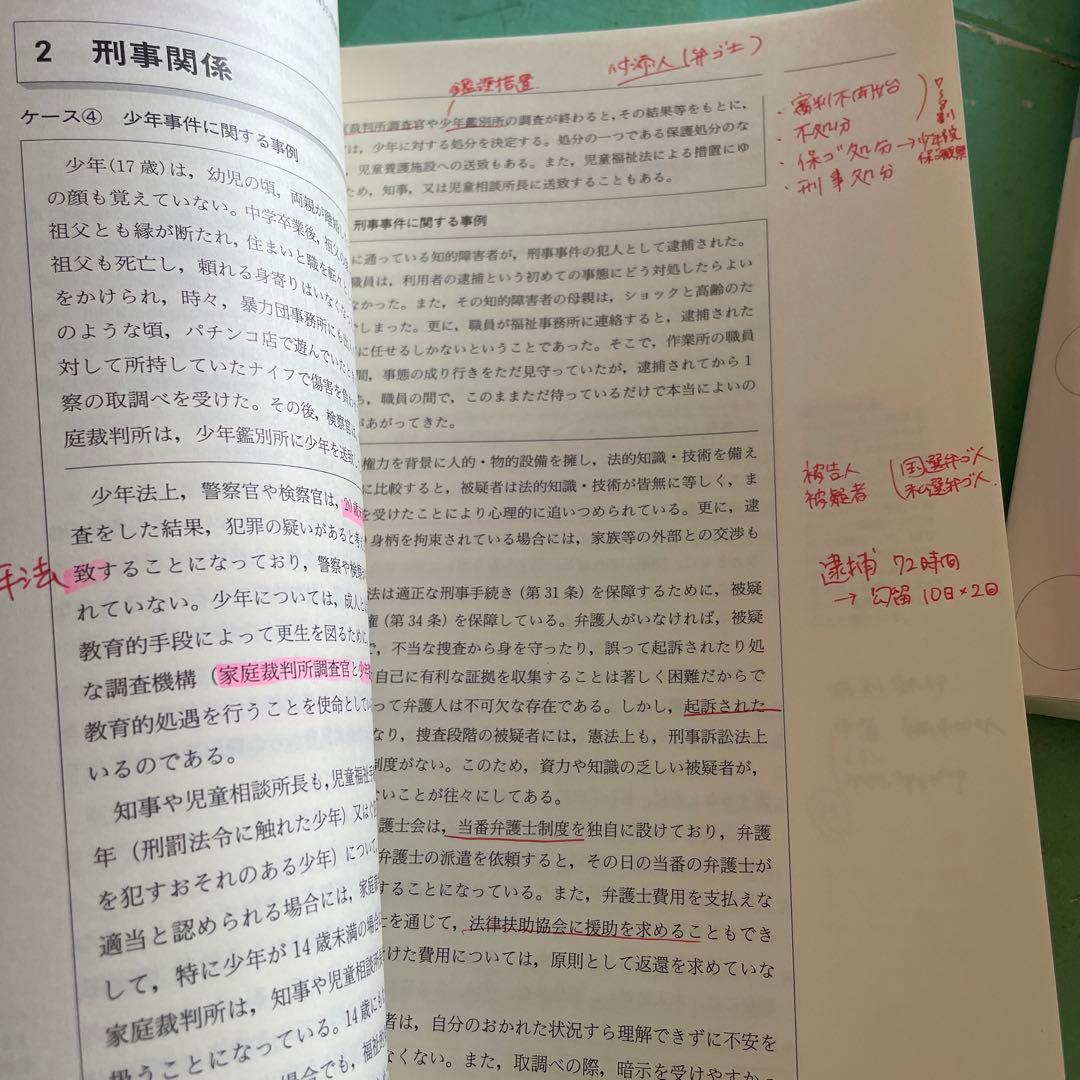 2 刑事関係
ケース④ 少年事件に関する事例
少年(17歳)は,幼児の頃,両親が離婚し
の顔も覚えていない。中学卒業後,祖父の
祖父とも縁が断たれ,住まいと職を転々と
祖父も死亡し,頼れる身寄りはいなくな
をかけられ,時々,暴力団事務所にも出
のような頃,パチンコ店で遊んでいたとき
対して所持していたナイフで傷害を負わ
察の取調べを受けた。その後,検察官は,
庭裁判所は,少年鑑別所に少年を送致し
少年法上,警察官や検察官は,20歳
査をした結果,犯罪の疑いがあると考え
致することになっており,警察や検察
れていない。少年については,成人と
教育的手段によって更生を図るために,
な調査機構(家庭裁判所調査官と少年
教育的処遇を行うことを使命としてい
いるのである。
知事や児童相談所長も,児童福祉
年(刑罰法令に触れた少年)又は
を犯すおそれのある少年)について
適当と認められる場合には,家庭
して,特に少年が14歳未満の場合
家庭裁判所は,知事や児童相談所長
扱うことになっている。14歳に
場合でも,福祉
年法
鑑護措置
付添人(弁ゴ士)
裁判所調査官や少年鑑別所の調査が終わると,その結果等をもとに,
は,少年に対する処分を決定する。処分の一つである保護処分のな
,児童養護施設への送致もある。また,児童福祉法による措置にゆ
ため,知事,又は児童相談所長に送致することもある。
・審判不開始
・不処分
・保ゴ処分→少年院
保護観察
・刑事処分
刑事事件に関する事例
に通っている知的障害者が,刑事事件の犯人として逮捕された。
職員は,利用者の逮捕という初めての事態にどう対処したらよい
なかった。また,その知的障害者の母親は,ショックと高齢のた
しまった。更に,職員が福祉事務所に連絡すると,逮捕された
に任せるしかないということであった。そこで,作業所の職員
間,事態の成り行きをただ見守っていたが,逮捕されてから1
ち,職員の間で,このままただ待っているだけで本当によいの
があがってきた。
権力を背景に人的・物的設備を擁し,法的知識・技術を備え
に比較すると,被疑者は法的知識・技術が皆無に等しく,ま
を受けたことにより心理的に追いつめられている。更に,逮
身柄を拘束されている場合には,家族等の外部との交渉も
被告人
被疑者
国選弁ゴ人
私選弁ゴ人
逮捕 72時間
→勾留 10日×2回
法は適正な刑事手続き(第31条)を保障するために,被疑
権(第34条)を保障している。弁護人がいなければ,被疑
で,不当な捜査から身を守ったり,誤って起訴されたり処
自己に有利な証拠を収集することは著しく困難だからで
って弁護人は不可欠な存在である。しかし,起訴された
なり,捜査段階の被疑者には,憲法上も,刑事訴訟法上
制度がない。このため,資力や知識の乏しい被疑者が,
ないことが往々にしてある。
護士会は,当番弁護士制度を独自に設けており,弁護
弁護士の派遣を依頼すると,その日の当番の弁護士が
することになっている。また,弁護士費用を支払えな
士を通じて,法律扶助協会に援助を求めることもでき
けた費用については,原則として返還を求めていな
者は,自分のおかれた状況すら理解できずに不安を
なくない。また,取調べの際,暗示を受けやすか